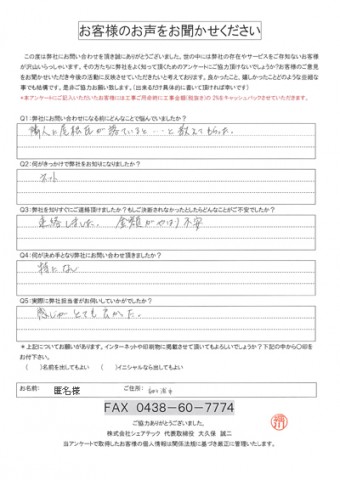 お客様のお声をお聞かせください
この度は弊社にお問い合わせを頂き誠にありがとうございました。世の中には弊社の存在やサービスをご存知ないお客様
が沢山いらっしゃいます。その方たちに弊社をよく知って頂くためのアンケートにご協力頂けないでしょうか?お客様のご意見
をお聞かせいただき今後の活動に反映させていただきたいと考えております。良かったこと、嬉しかったことどのような些細な
事でも結構です。是非ご協力お願いいたします。(出来るだけ具体的に書いて頂ければ幸いです)
*本アンケートにご記入いただいたお客様には工事ご用命時に工事金額(税抜き)の2%をキャッシュバックさせていただきます。
Q1:弊社にお問い合わせになる前にどんなことで悩んでいましたか?
隣人に屋根瓦が落ていると…と教えてもらった。
Q2:何がきっかけで弊社をお知りになりましたか?
ネット
Q3:弊社を知りすぐにご連絡頂けましたか?もしご決断されなかったとしたらどんなことがご不安でしたか?
連絡しました。 金額がやはり不安
Q4:何が決め手となり弊社にお問い合わせ頂きましたか?
特になし
Q5:実際に弊社担当者がお伺いしていかがでしたか?
感じがとても良かった。
*上記についてお願いがあります。インターネットや印刷物に掲載させて頂いてもよろしいでしょうか?下記の中から○印を
お付下さい。
( )名前を出してもよい ( )イニシャルなら出してもよい
お名前: 匿名様 ご住所:
FAX 0438-60-7774
ご協力ありがとうございました。
株式会社シェアテック 代表取締役 大久保 誠二
当アンケートで取得したお客様の個人情報は関係法規に基づき厳正に管理いたします。